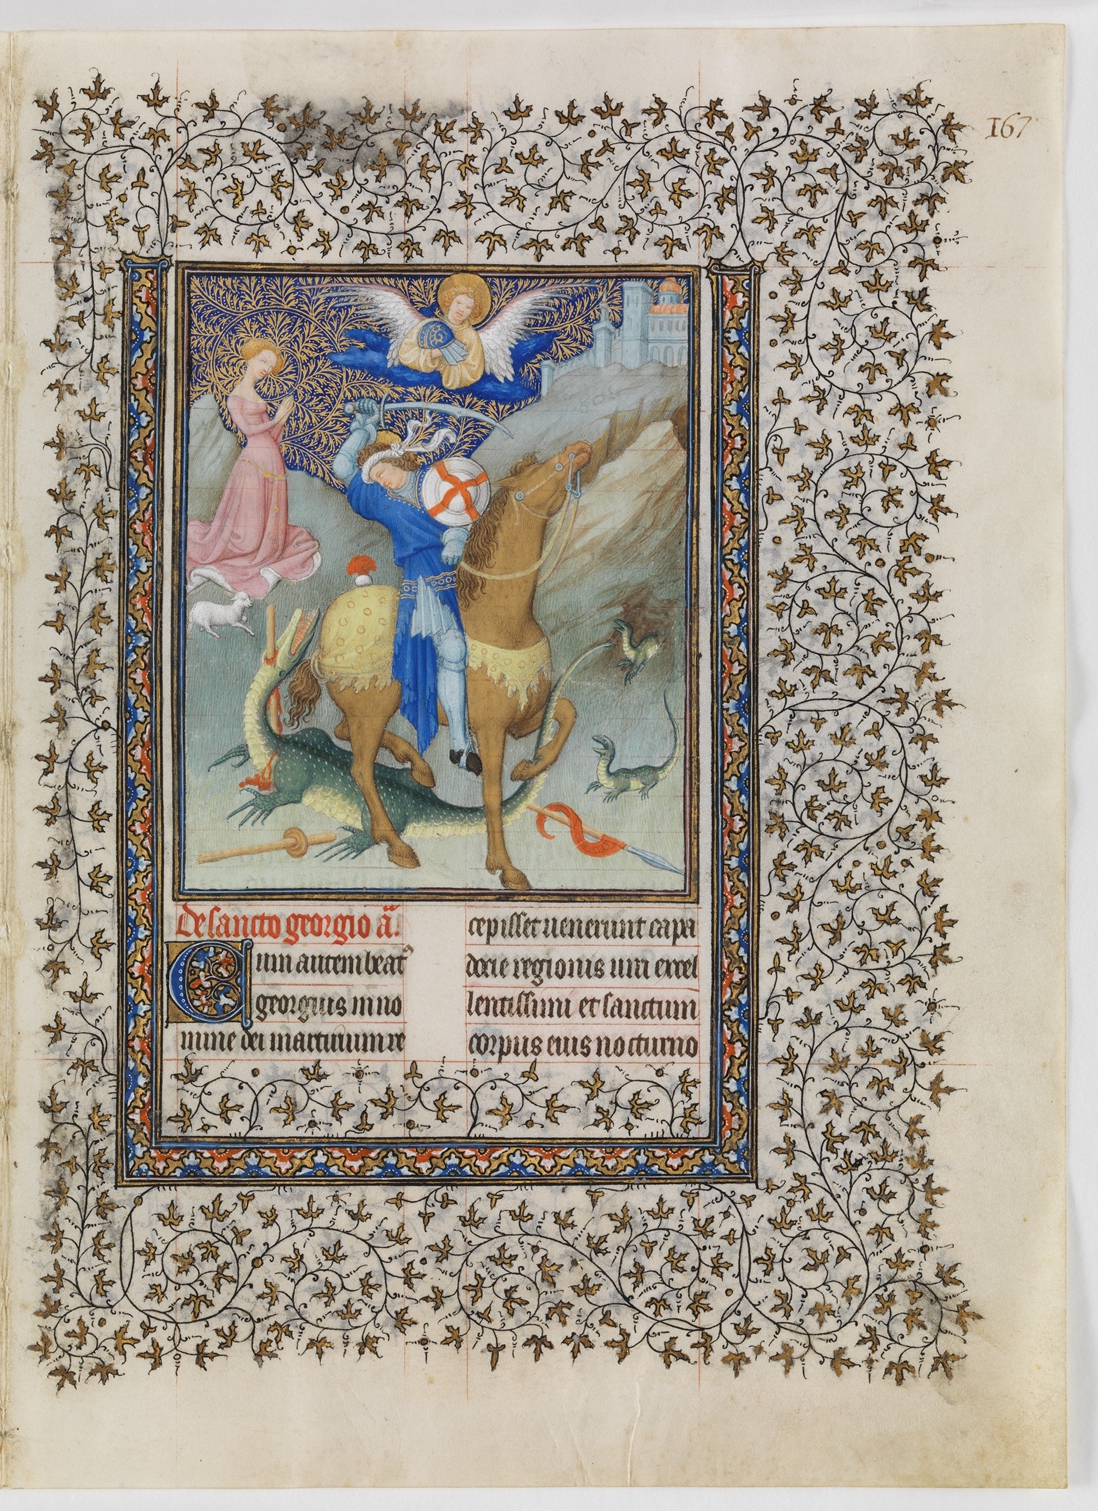 167
de sancto georgio añ.
Cum autem beatꝰ
georgius in no
mine dei martirium re
cepisset uenerunt capa
docie regionis uiri excel
lentissimi et sanctum
corpus eius nocturno